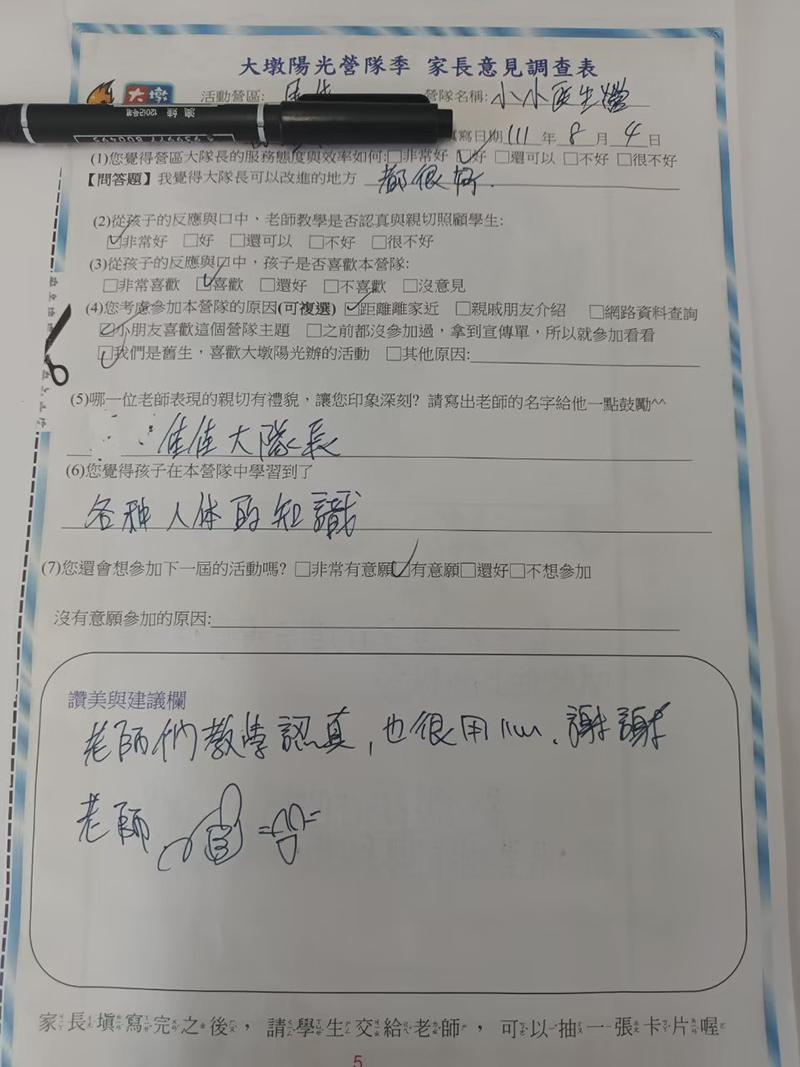 大墩陽光營隊季 家長意見調查表
大墩 活動營區: 營隊名稱:小小医生營
填寫日期 111 年 8 月 4 日
(1)您覺得營區大隊長的服務態度與效率如何:□非常好 ☑好 □還可以 □不好 □很不好
【問答題】我覺得大隊長可以改進的地方 都很好.
(2)從孩子的反應與口中，老師教學是否認真與親切照顧學生:
☑非常好 □好 □還可以 □不好 □很不好
(3)從孩子的反應與口中，孩子是否喜歡本營隊:
□非常喜歡 ☑喜歡 □還好 □不喜歡 □沒意見
(4)您考慮參加本營隊的原因(可複選) ☑距離離家近 □親戚朋友介紹 □網路資料查詢
☑小朋友喜歡這個營隊主題 □之前都沒參加過，拿到宣傳單，所以就參加看看
☑我們是舊生，喜歡大墩陽光辦的活動 □其他原因:
(5)哪一位老師表現的親切有禮貌，讓您印象深刻? 請寫出老師的名字給他一點鼓勵^^
佳佳大隊長
(6)您覺得孩子在本營隊中學習到了
各种人体的知識
(7)您還會想參加下一屆的活動嗎? □非常有意願 ☑有意願 □還好 □不想參加
沒有意願參加的原因:
讚美與建議欄
老師們教學認真，也很用心. 謝謝
老師
家長填寫完之後，請學生交給老師，可以抽一張卡片喔
5